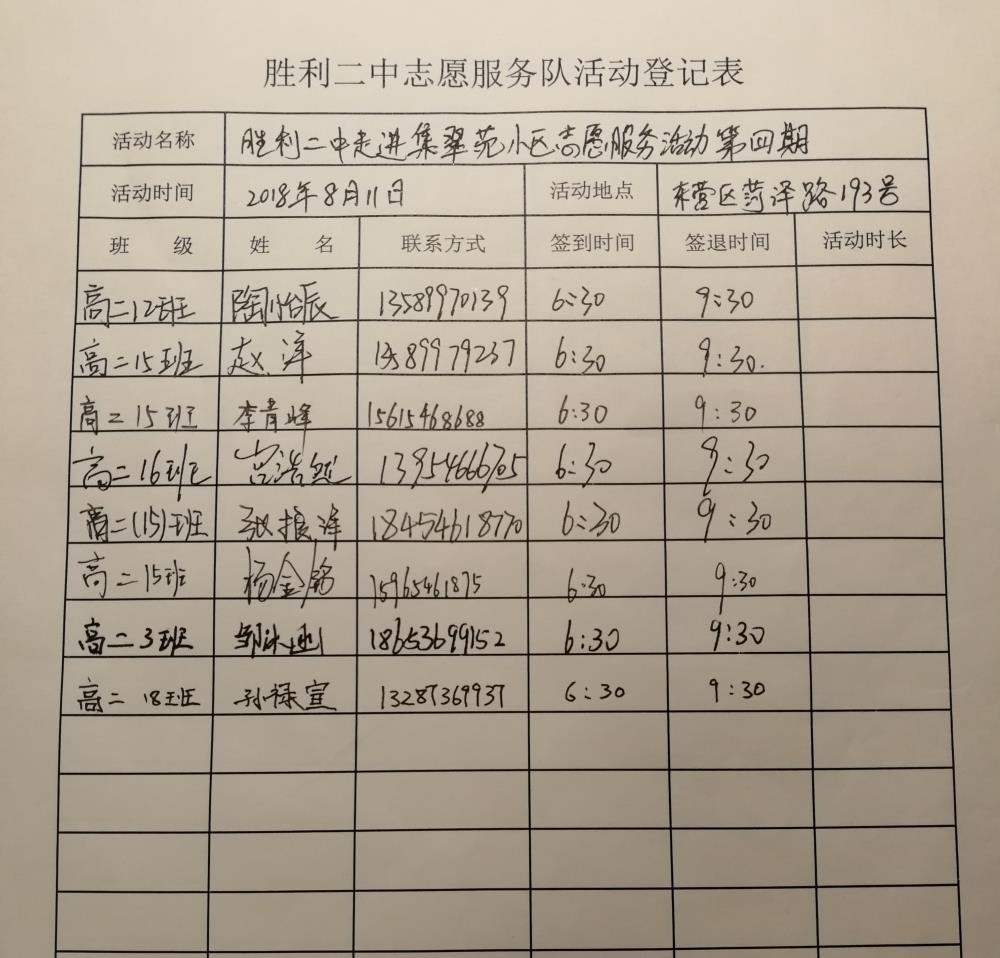 胜利二中志愿服务队活动登记表
活动名称 胜利二中走进集翠苑小区志愿服务活动第四期
活动时间 2018年8月11日 活动地点 东营区菏泽路193号
班 级 姓 名 联系方式 签到时间 签退时间 活动时长
高二12班 陶怡辰 13589970139 6:30 9:30
高二15班 赵洋 13589979237 6:30 9:30.
高二15班 李青峰 15615468688 6:30 9:30
高二16班 宫浩然 13954666705 6:30 9:30
高二(15)班 张振泽 18454618770 6:30 9:30
高二15班 杨金铭 15965461875 6:30 9:30
高二3班 邹冰函 18653699152 6:30 9:30
高二18班 孙禄宣 13287369937 6:30 9:30